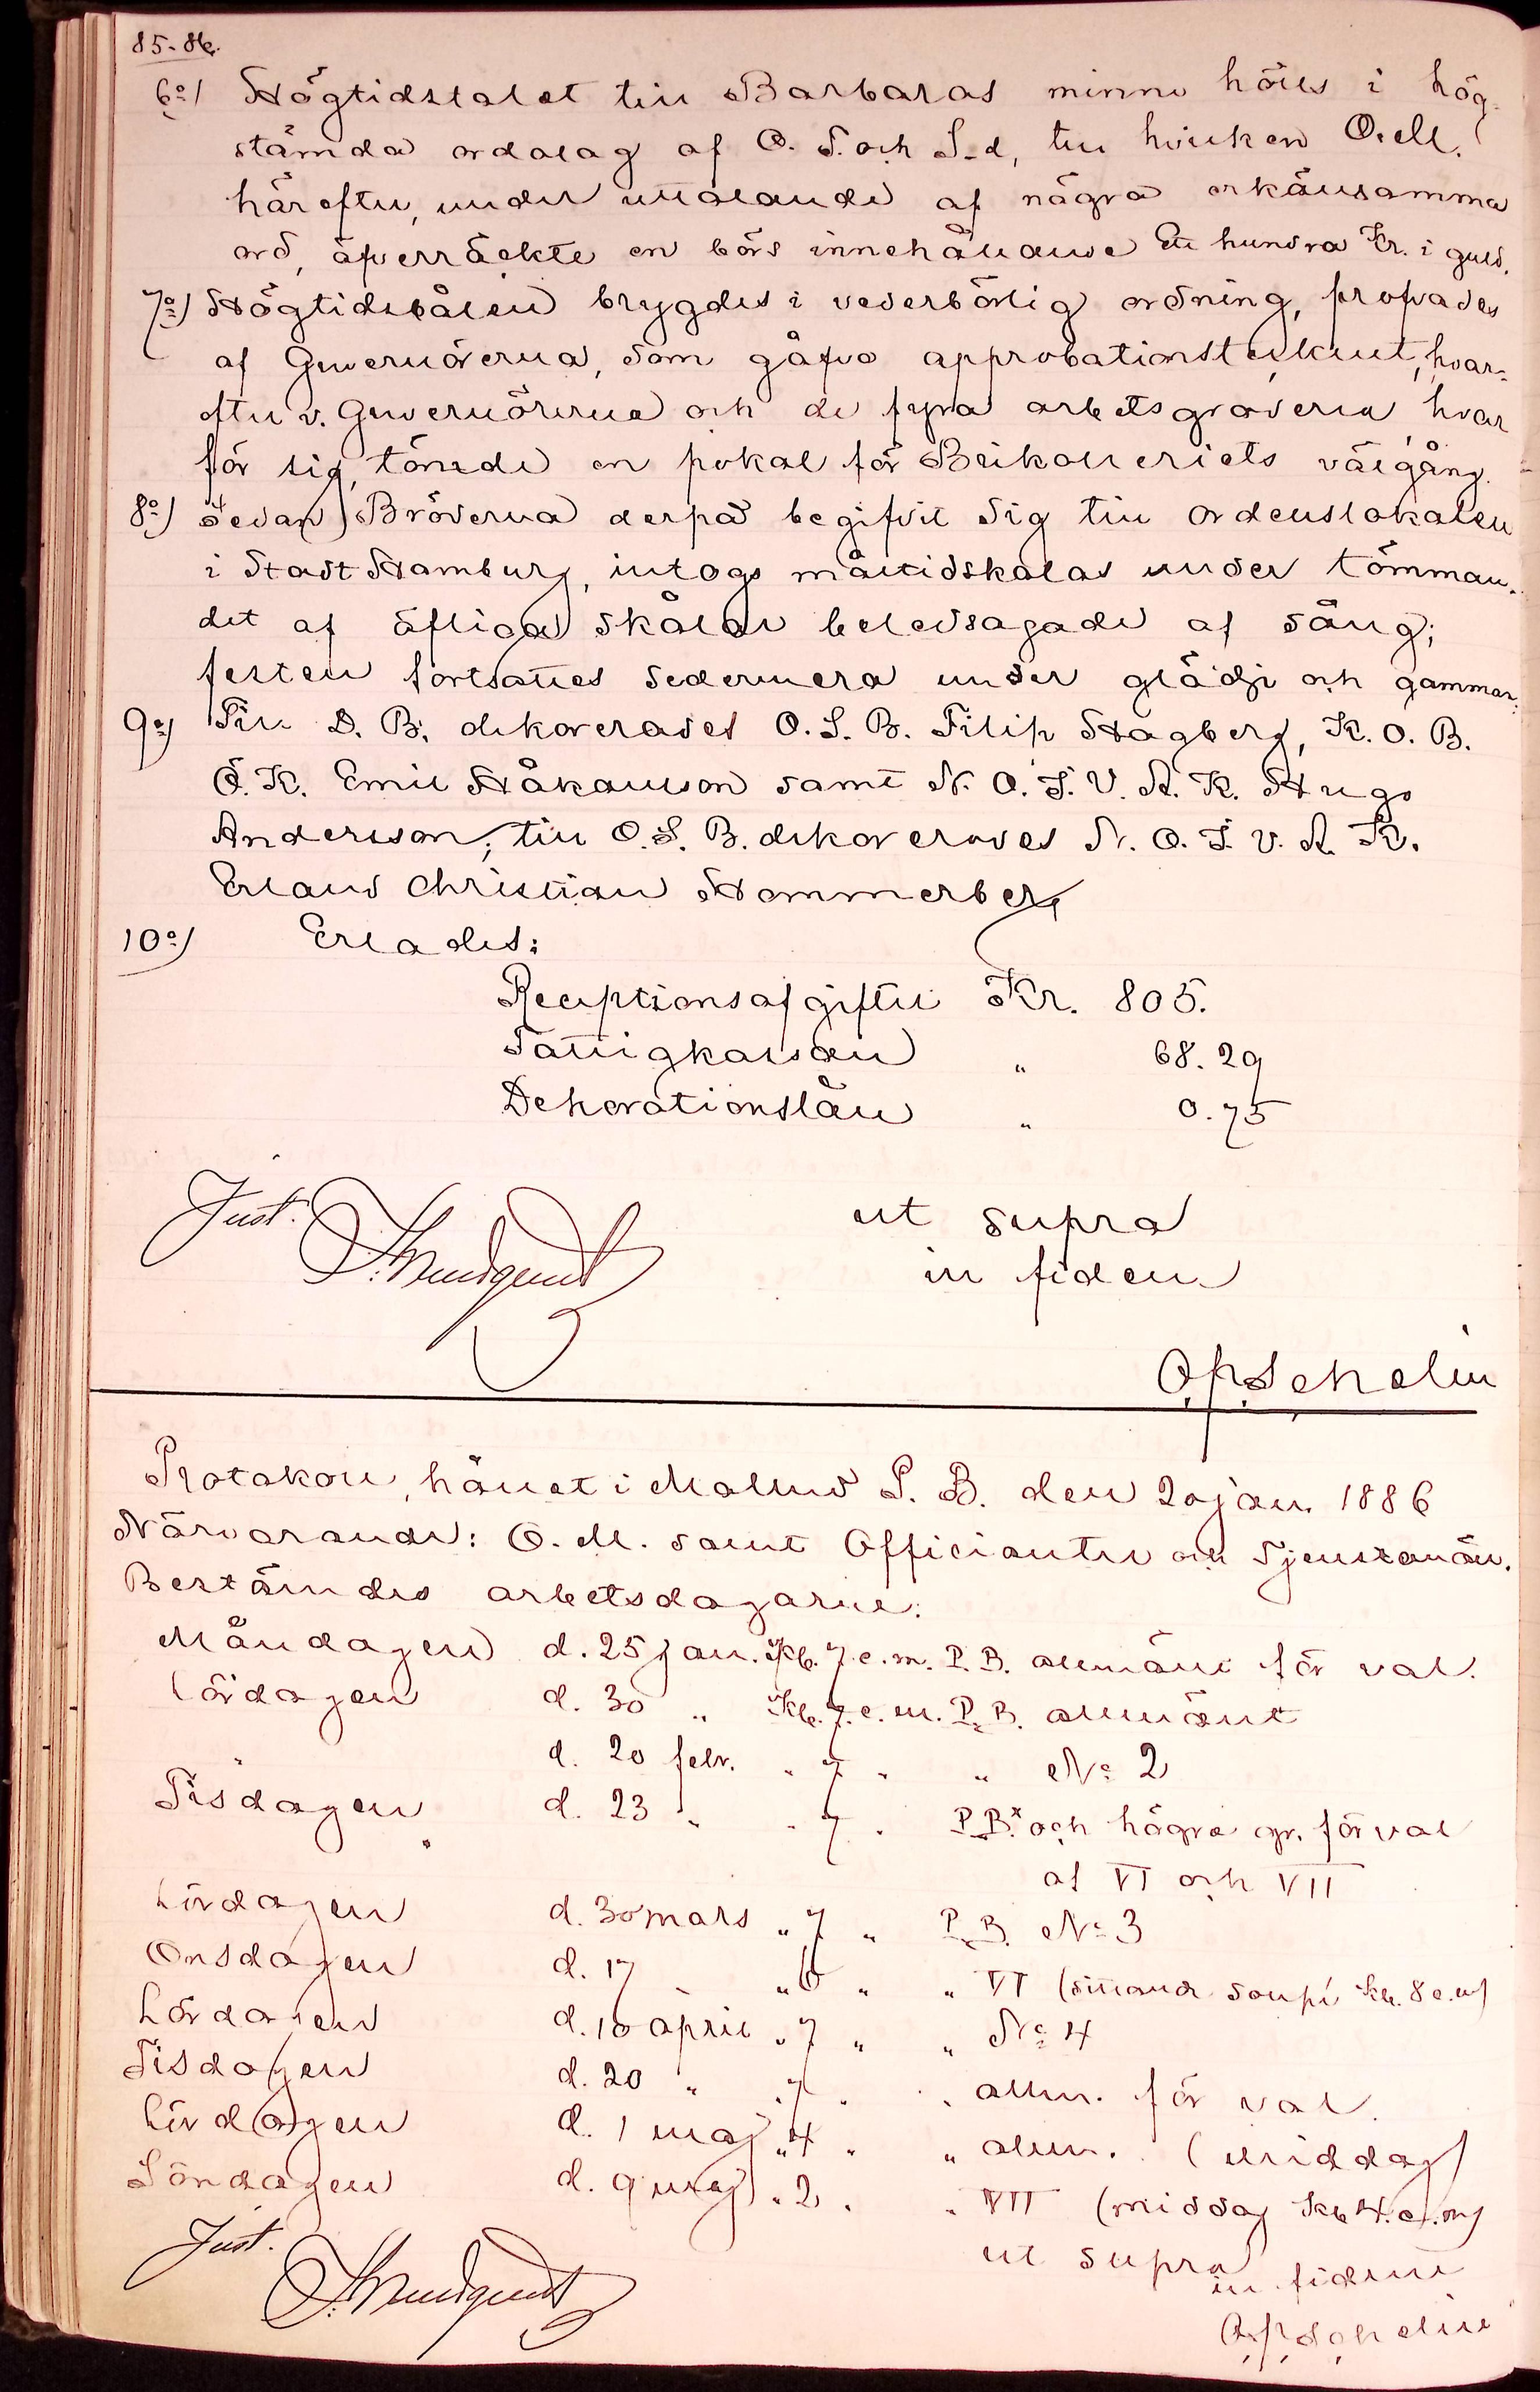 85-86.
6o/ Högtidstalet till Barbaras minne hölls i hög-
stämda ordalag af O. S. och S-d, till hvilken O. M.
härefter, under uttalande af några erkänsamma
ord, öfverräckte en börs innehållande Ett hundra Kr. i guld.
7o/ Högtidsbålen brygdes i vederbörlig ordning, profvades
af Guvernörerna, som gåfvo approbationstecknet, hvar-
efter v. Guvernörerna och de fyra arbetsgraderna, hvar
för sig, tömde en pokal för Baikalleriets välgång.
8o/ Sedan Bröderna derpå begifvit sig till ordenslokalen
i Stadt Hamburg, intogs måltidskalas under tömman-
det af öfliga skålar beledsagade af sång;
festen fortsattes sedermera under glädje och gamman.
9o/ Till D. B. dekorerades O. S. B. Filip Hagberg, K. O. B.
Ö. K. Emil Håkanson samt N. O. I. V. R. K. Hugo
Andersson; till O. S. B. dekorerades N. O. I. V. R. K.
Erland Christian Hammerberg
10o/ Erlades:
Receptionsafgifter Kr. 805.
Fattigkassan " 68. 29
Dekorationslån " 0. 75
Just. ut supra
in fidem
Protokoll, hållet i Malmö P. B. den 20 jan. 1886
Närvarande: O. M. samt Officianter och Tjenstemän.
Bestämdes arbetsdagarne:
Måndagen d. 25 jan. Kl. 7 e. m. P. B. allmänt för val.
Lördagen d. 30 " Kl. 7. e. m. P. B. allmänt
d. 20 febr. " 7 " " No 2
Tisdagen d. 23 " " 7 " P. B. och högre gr. för val
af VI och VII
Lördagen d. mars " 7 " P. B. No 3
Onsdagen d. 17 " 6 " " VI (sittande soupé kl. 8 e. m)
Lördagen d. 10 april " 7 " " No 4
Tisdagen d. 20 " " 7 " " allm. för val.
Lördagen d. 1 maj " 4 " " allm. (middag)
Söndagen d. 9 maj " 2 " " VII (middag kl. 4. e. m)
Just. ut supra
in fidem